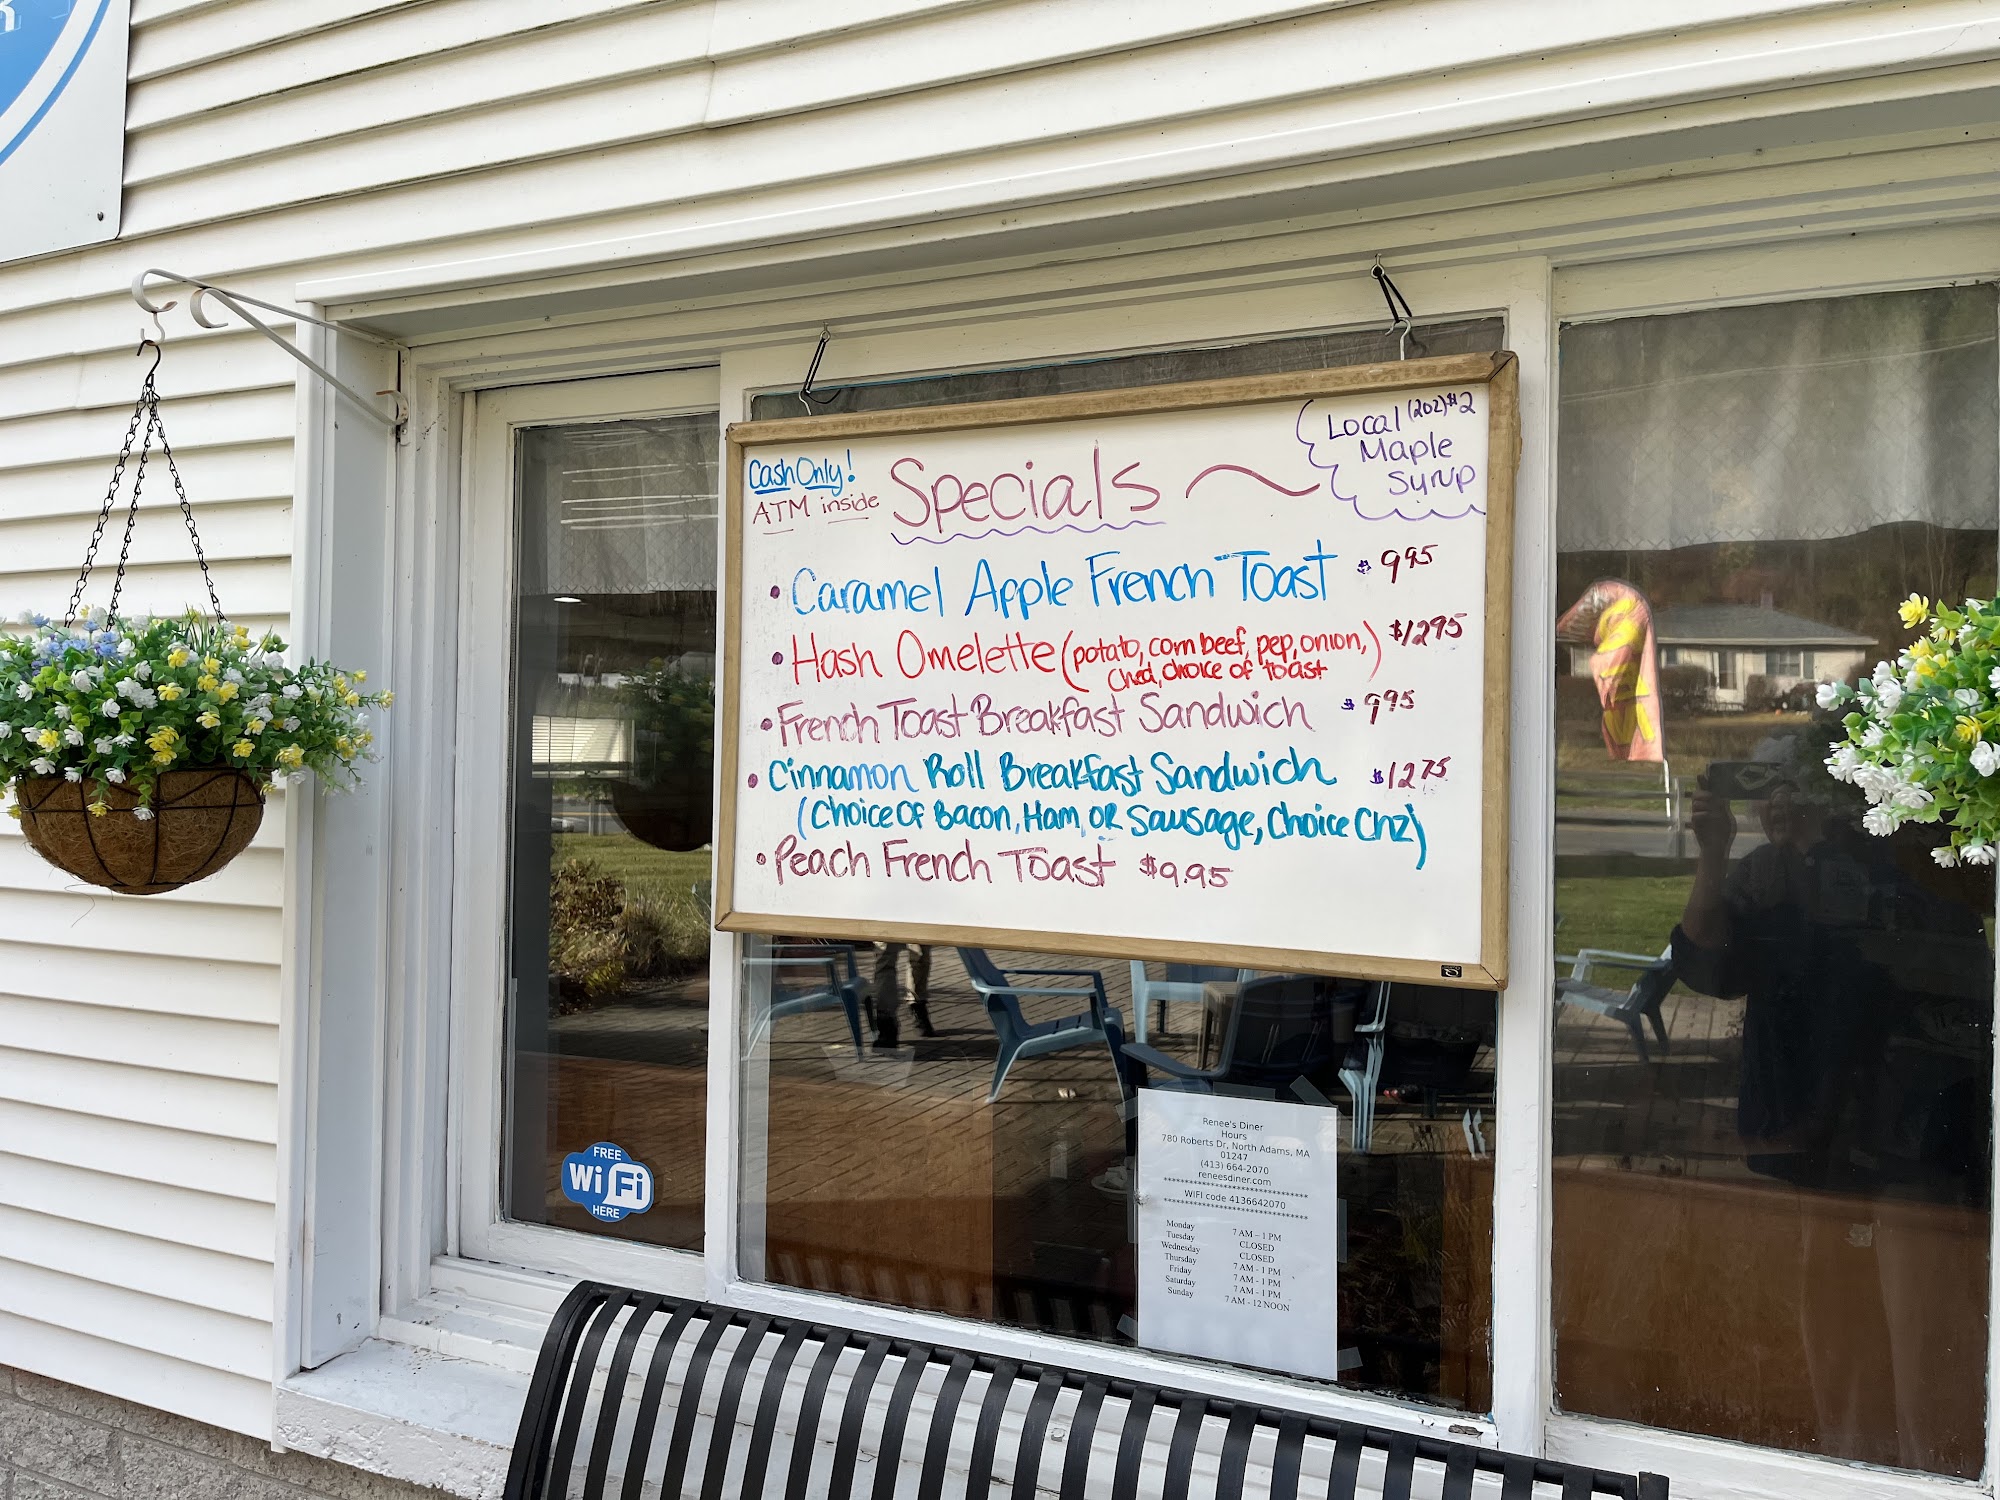 Cash Only!
ATM inside
Specials
Local (2oz) $2
Maple
Syrup
• Caramel Apple French Toast $995
• Hash Omelette (potato, corn beef, pep, onion, $1295
Ched, choice of toast)
• French Toast Breakfast Sandwich $995
• Cinnamon Roll Breakfast Sandwich $1275
(Choice Of Bacon, Ham, OR Sausage, Choice Chz)
• Peach French Toast $9.95
FREE
WiFi
HERE
Renee's Diner
Hours
780 Roberts Dr, North Adams, MA
01247
(413) 664-2070
reneesdiner.com
********************************
WIFI code 4136642070
********************************
Monday 7 AM – 1 PM
Tuesday CLOSED
Wednesday CLOSED
Thursday 7 AM - 1 PM
Friday 7 AM - 1 PM
Saturday 7 AM - 1 PM
Sunday 7 AM - 12 NOON